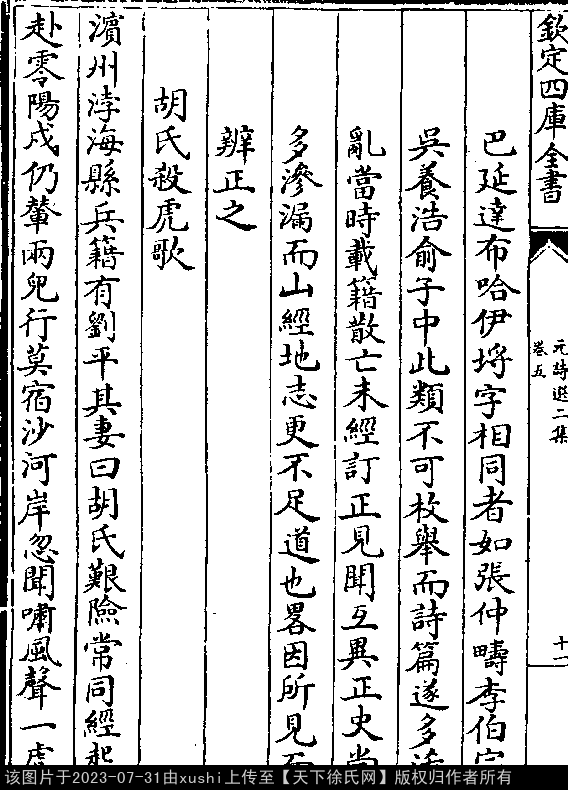 欽定四庫全書
元詩選二集
卷五
十一
巴延達布哈伊埒字相同者如張仲疇李伯
吳養浩俞子中此類不可枚舉而詩篇遂多
亂當時載籍散亡未經訂正見聞互異正史尚
多滲漏而山經地志更不足道也畧因所見而
辨正之
胡氏殺虎歌
濱州渟海縣兵籍有劉平其妻曰胡氏艱險常同經起
赴零陽戍仍輦兩兒行莫宿沙河岸忽聞嘯風聲一虎
该图片于2023-07-31由xushi上传至【天下徐氏网】版权归作者所有